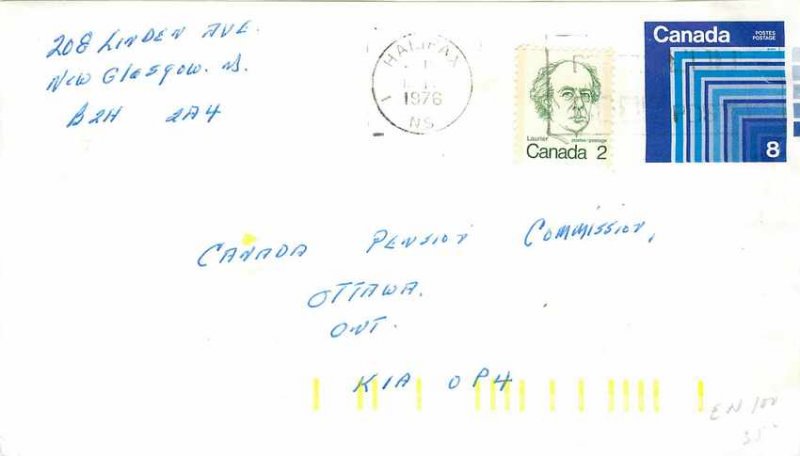 208 LINDEN AVE.
New Glasgow. N.
B2H 2A4
HALIFAX
1976
NS
Laurier postes-postage
Canada 2
Canada POSTES POSTAGE
8
CANADA PENSION COMMISSION,
OTTAWA.
ONT.
K1A 0P4
EN 100
35¢